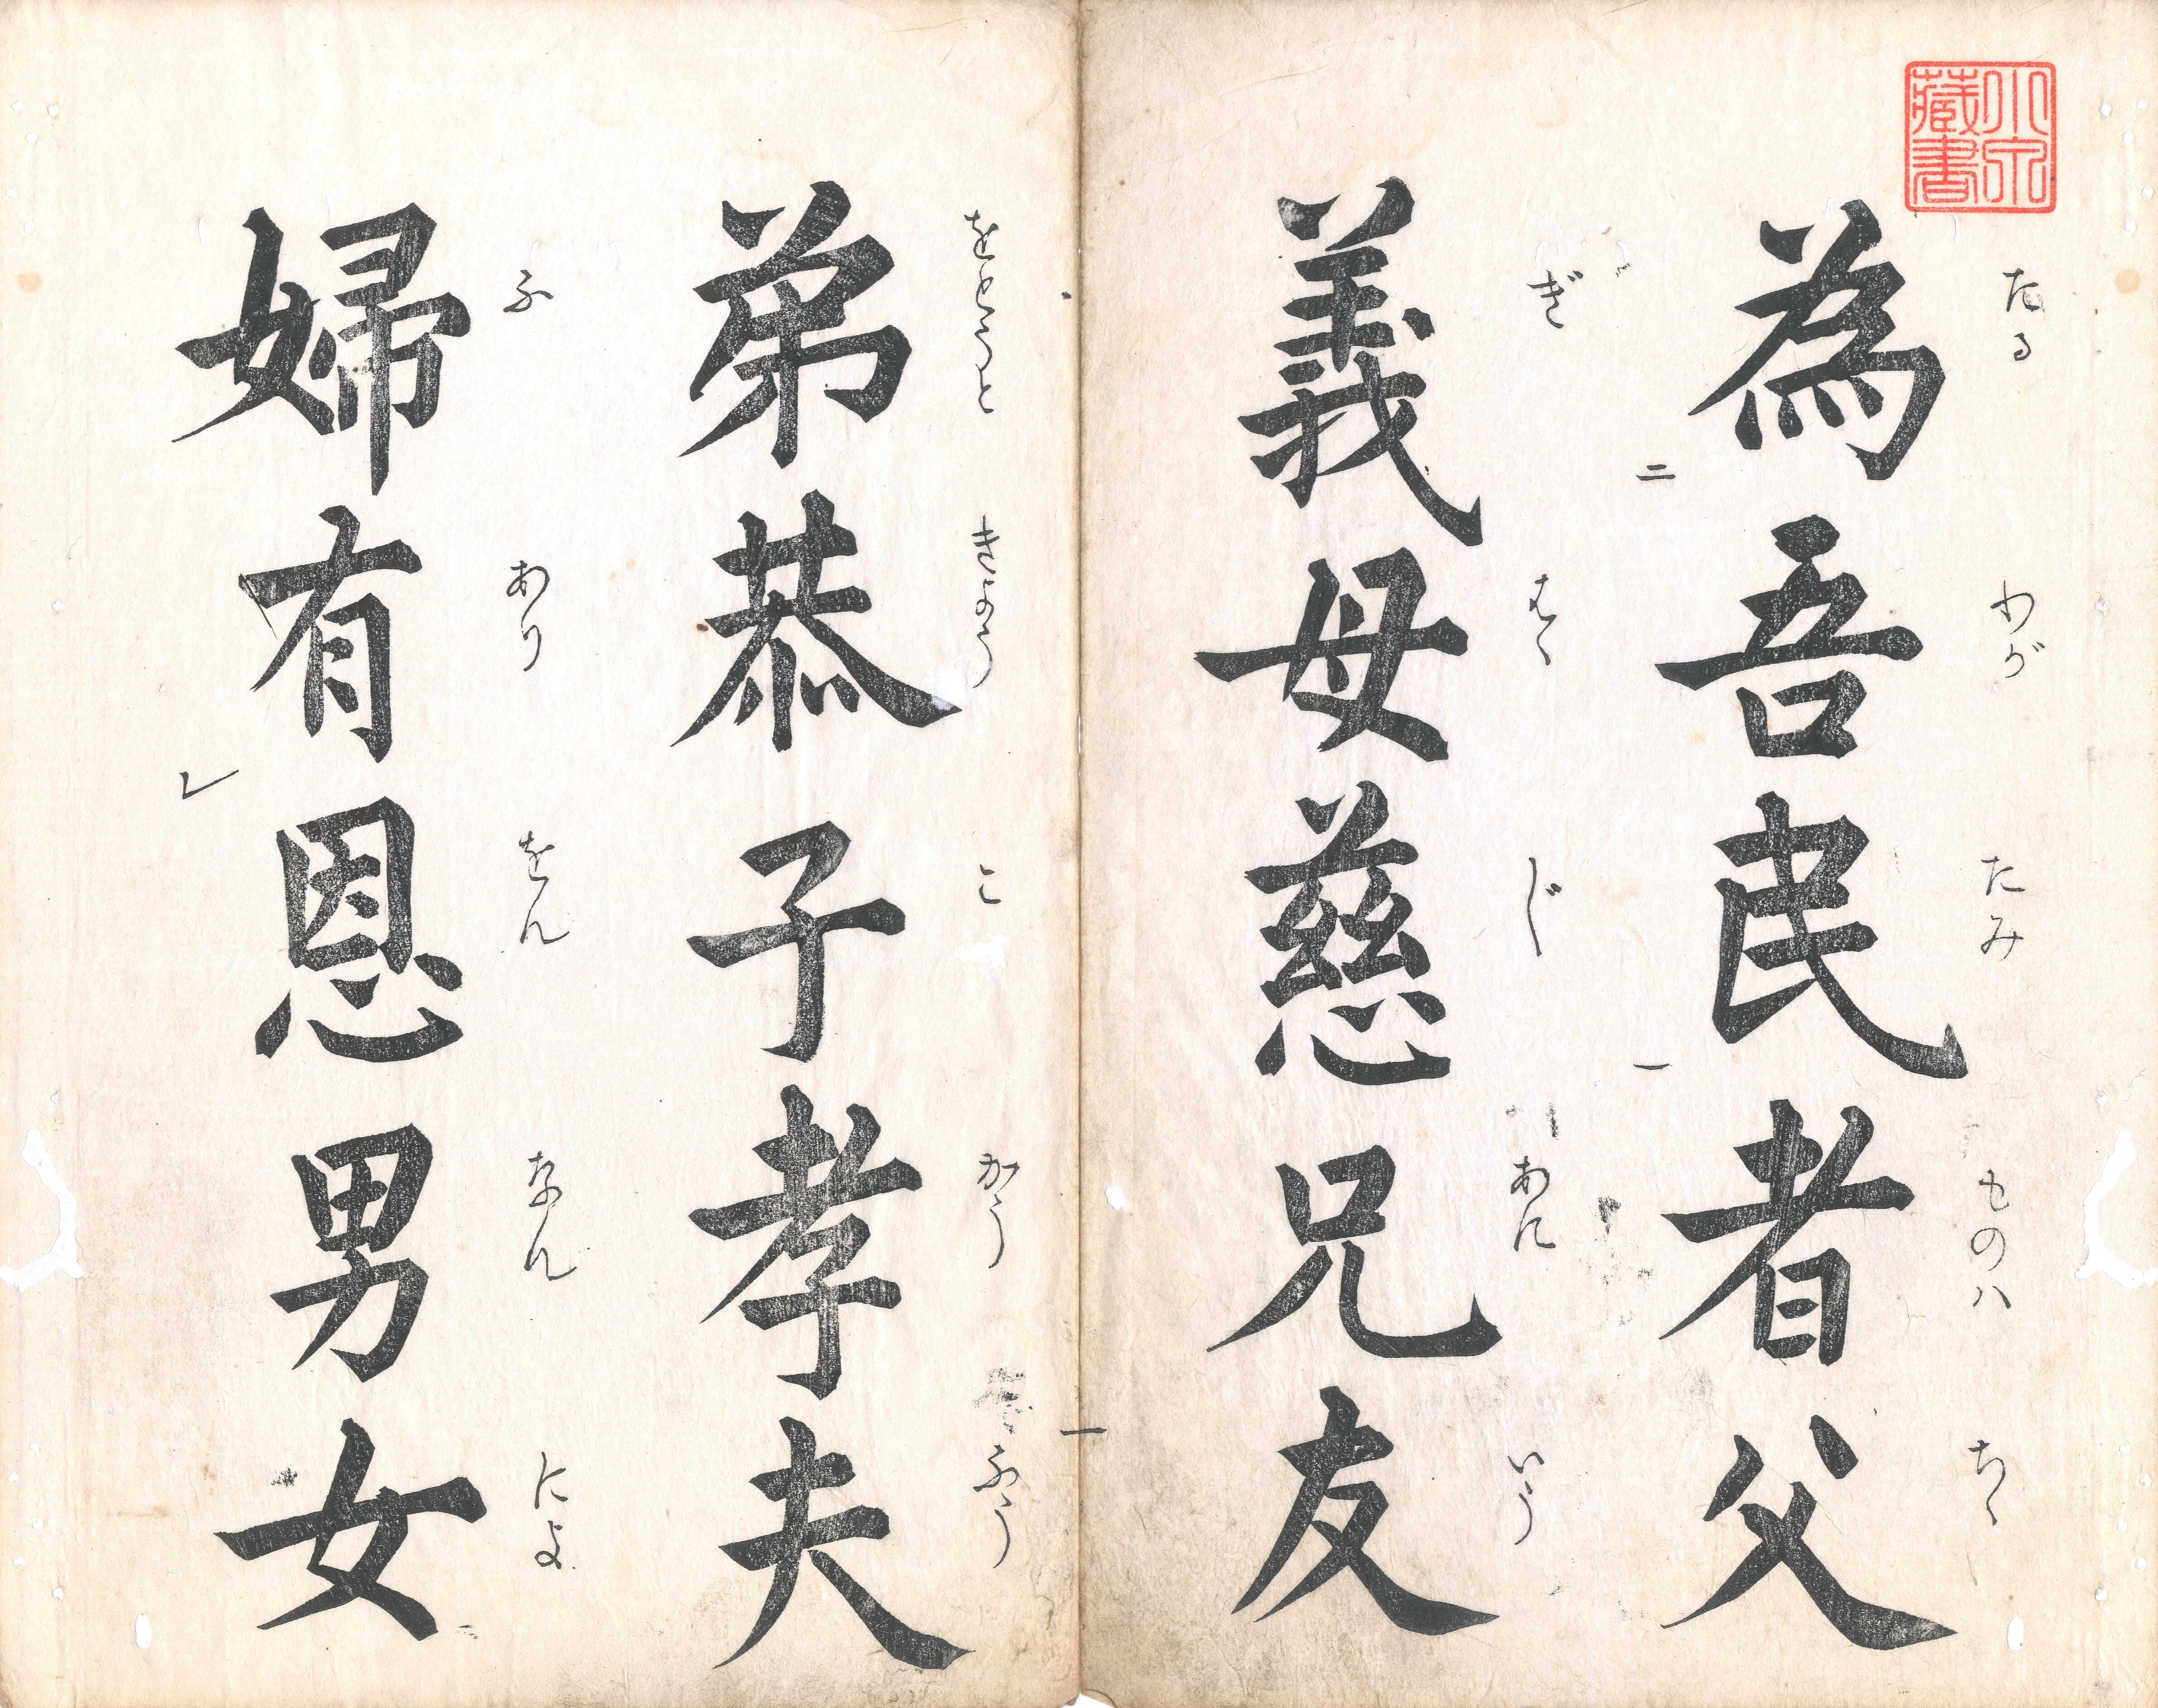 藏書
たる わが たみ ものハ ちゝ
為吾民者父
二 一
ぎ はゝ じ あに いう
義母慈兄友
一
をとうと きよう こ かう ふう
弟恭子孝夫
ふ あり をん なん によ
婦有恩男女
レ